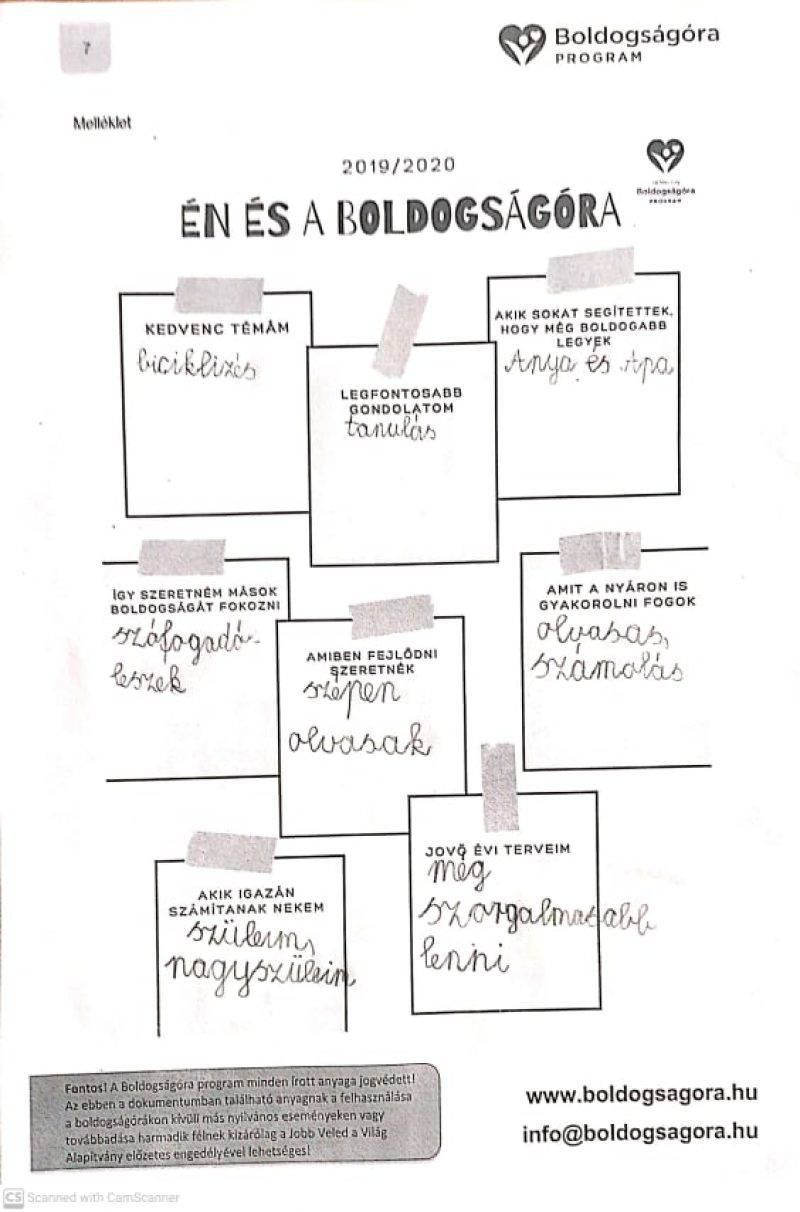 7
Boldogságóra
PROGRAM
Melléklet
2019/2020
Boldogságóra
PROGRAM
ÉN ÉS A BOLDOGSÁGÓRA
KEDVENC TÉMÁM
biciklizés
LEGFONTOSABB
GONDOLATOM
tanulás
AKIK SOKAT SEGÍTETTEK,
HOGY MÉG BOLDOGABB
LEGYEK
Anya és Apa
ÍGY SZERETNÉM MÁSOK
BOLDOGSÁGÁT FOKOZNI
szófogadó
leszek
AMIBEN FEJLŐDNI
SZERETNÉK
szépen
olvasak
AMIT A NYÁRON IS
GYAKOROLNI FOGOK
olvasas,
számolás
AKIK IGAZÁN
SZÁMÍTANAK NEKEM
szüleim,
nagyszüleim
JÖVŐ ÉVI TERVEIM
még
szorgalmasabb
lenni
Fontos! A Boldogságóra program minden írott anyaga jogvédett!
Az ebben a dokumentumban található anyagnak a felhasználása
a boldogságórákon kívüli más nyilvános eseményeken vagy
továbbadása harmadik félnek kizárólag a Jobb Veled a Világ
Alapítvány előzetes engedélyével lehetséges!
www.boldogsagora.hu
info@boldogsagora.hu
CS Scanned with CamScanner